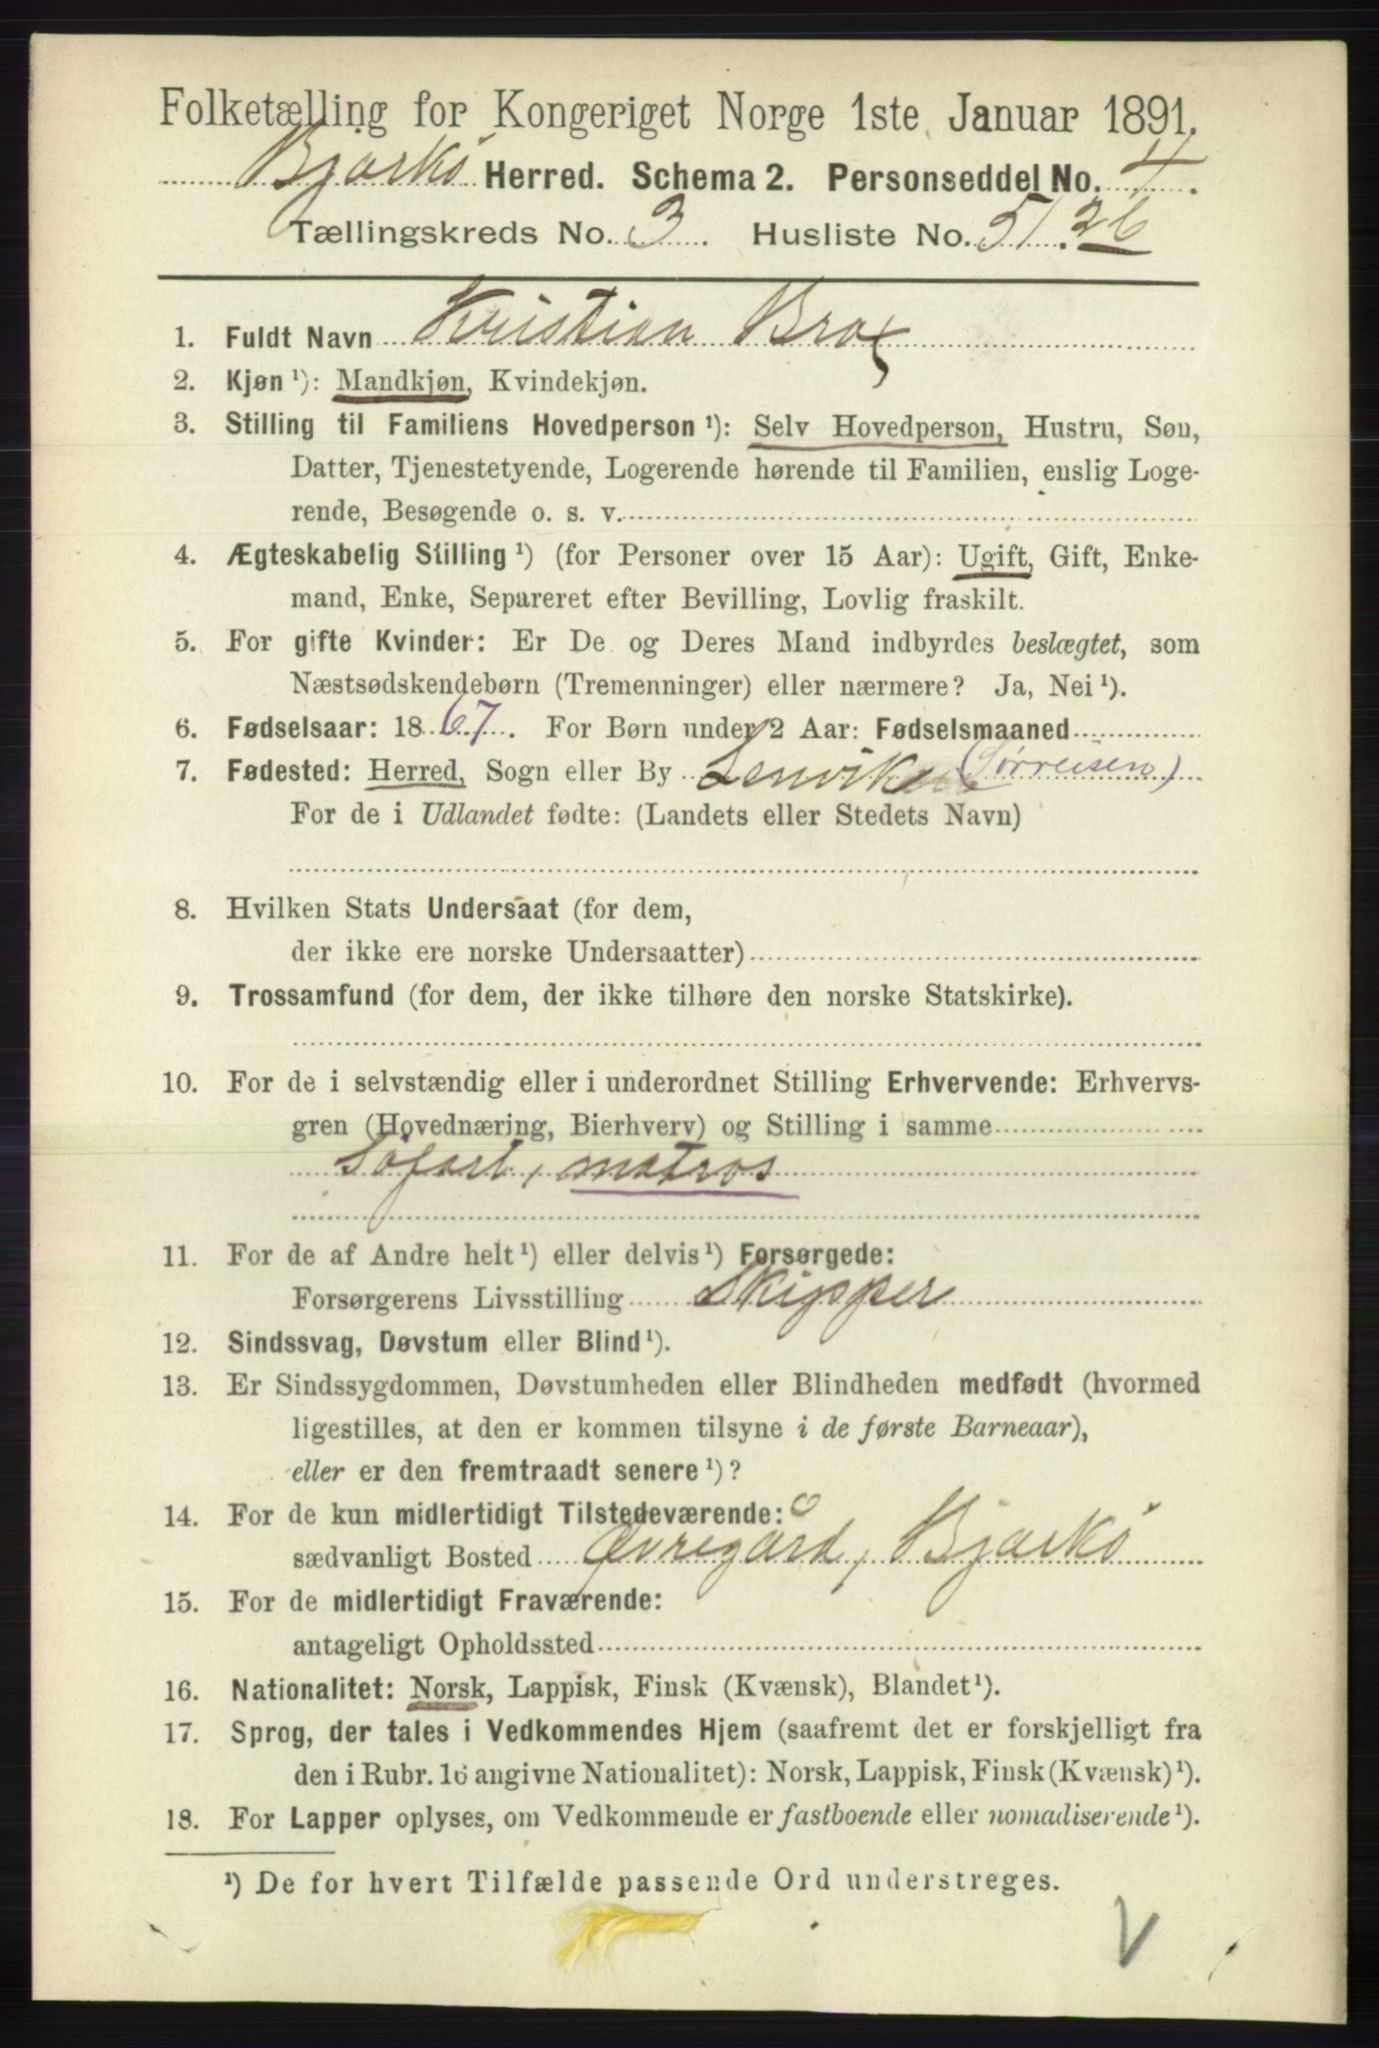 Folketælling for Kongeriget Norge 1ste Januar 1891.
Bjarkö Herred. Schema 2. Personseddel No. 4.
Tællingskreds No. 3. Husliste No. 51. 26
1. Fuldt Navn Kristian Brox
2. Kjøn ¹): Mandkjøn, Kvindekjøn.
3. Stilling til Familiens Hovedperson ¹): Selv Hovedperson, Hustru, Søn,
Datter, Tjenestetyende, Logerende hørende til Familien, enslig Loge-
rende, Besøgende o. s. v.
4. Ægteskabelig Stilling ¹) (for Personer over 15 Aar): Ugift, Gift, Enke-
mand, Enke, Separeret efter Bevilling, Lovlig fraskilt.
5. For gifte Kvinder: Er De og Deres Mand indbyrdes beslægtet, som
Næstsødskendebørn (Tremenninger) eller nærmere? Ja, Nei ¹).
6. Fødselsaar: 1867. For Børn under 2 Aar: Fødselsmaaned
7. Fødested: Herred, Sogn eller By Lenviken (Sørreisen)
For de i Udlandet fødte: (Landets eller Stedets Navn)
8. Hvilken Stats Undersaat (for dem,
der ikke ere norske Undersaatter)
9. Trossamfund (for dem, der ikke tilhøre den norske Statskirke).
10. For de i selvstændig eller i underordnet Stilling Erhvervende: Erhvervs-
gren (Hovednæring, Bierhverv) og Stilling i samme
Söfart, matros
11. For de af Andre helt ¹) eller delvis ¹) Forsørgede:
Forsørgerens Livsstilling Skipper
12. Sindssvag, Døvstum eller Blind ¹).
13. Er Sindssygdommen, Døvstumheden eller Blindheden medfødt (hvormed
ligestilles, at den er kommen tilsyne i de første Barneaar),
eller er den fremtraadt senere ¹)?
14. For de kun midlertidigt Tilstedeværende:
sædvanligt Bosted Øvregård, Bjarkö
15. For de midlertidigt Fraværende:
antageligt Opholdssted
16. Nationalitet: Norsk, Lappisk, Finsk (Kvænsk), Blandet ¹).
17. Sprog, der tales i Vedkommendes Hjem (saafremt det er forskjelligt fra
den i Rubr. 16 angivne Nationalitet): Norsk, Lappisk, Finsk (Kvænsk) ¹).
18. For Lapper oplyses, om Vedkommende er fastboende eller nomadiserende ¹).
¹) De for hvert Tilfælde passende Ord understreges.
V